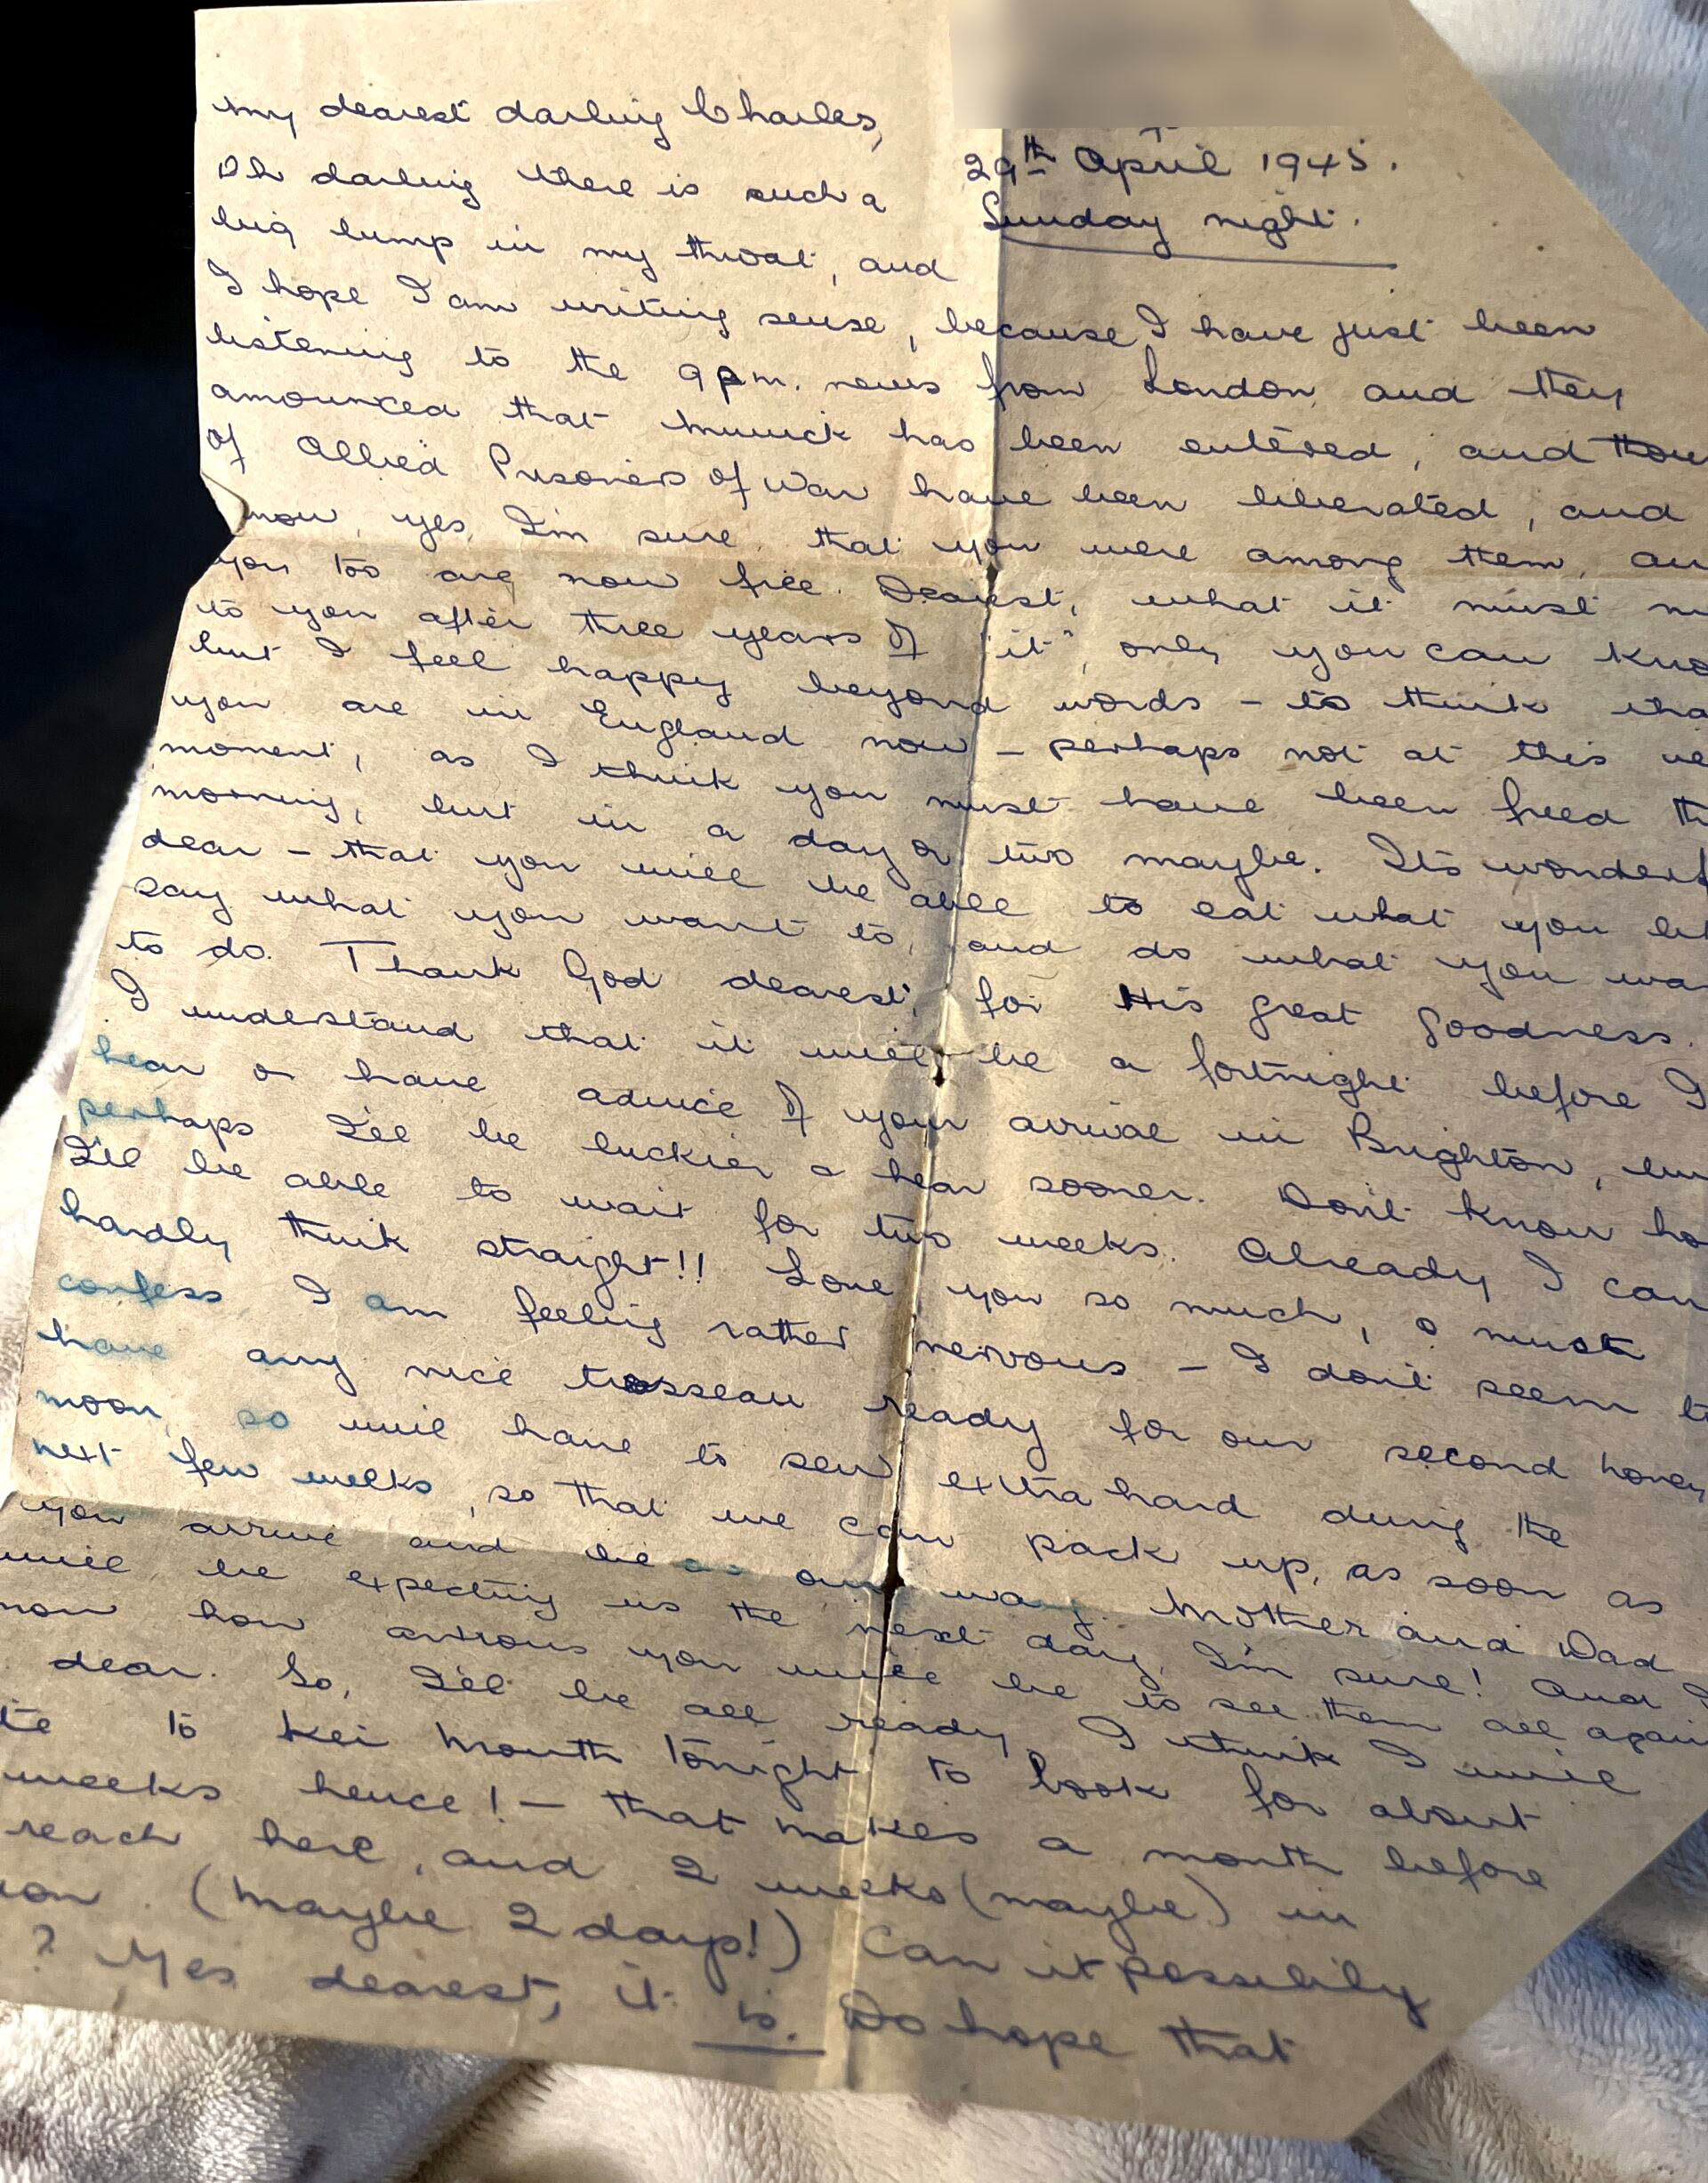 29th April 1945.
Sunday night.
My dearest darling Charles,
Oh darling there is such a
big lump in my throat, and
I hope I am writing sense, because I have just been
listening to the 9pm. news from London and they
announced that Munick has been entered, and
of Allied Prisoners of War have been liberated, and
now, yes, I'm sure that you were among them, and
you too are now free. Dearest, what it must
to you after three years of "it", only you can
but I feel happy beyond words – to think
you are in England now – perhaps not at this
moment, as I think you must have been freed
morning, but in a day or two maybe. Its
dear – that you will be able to eat what you
say what you want to, and do what you
to do. Thank God dearest, for His great goodness.
I understand that it will be a fortnight before I
hear or have advice of your arrival in Brighton,
perhaps I'll be luckier & hear sooner. Don't know
I'll be able to wait for two weeks. Already I can
hardly think straight!! Love you so much, & must
confess I am feeling rather nervous – I don't seem
have any nice trosseau ready for our second honey
moon, so will have to sew extra hard durig the
next few weeks, so that we can pack up, as soon as
you arrive and be on our way. Mother and Dad
will be expecting us the next day, I'm sure! And I
now how anxious you will be to see them all again
dear. So, I'll be all ready, I think I will
te to Kei Mouth tonight to book for about
weeks hence! – that makes a month before
reach here, and 2 weeks (maybe) in
(maybe 2 days!) Can it possibly
? Yes dearest, it is. Do hope that